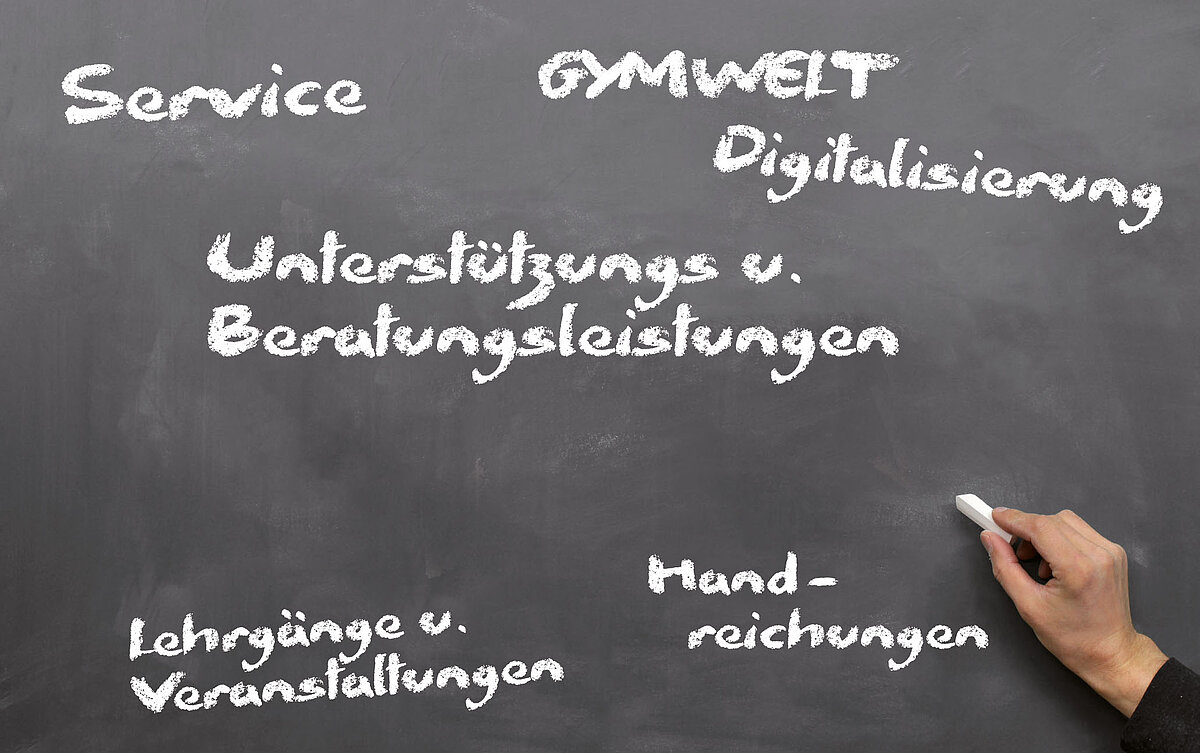 Service
GYMWELT
Digitalisierung
Unterstützungs u.
Beratungsleistungen
Hand-
reichungen
Lehrgänge u.
Veranstaltungen